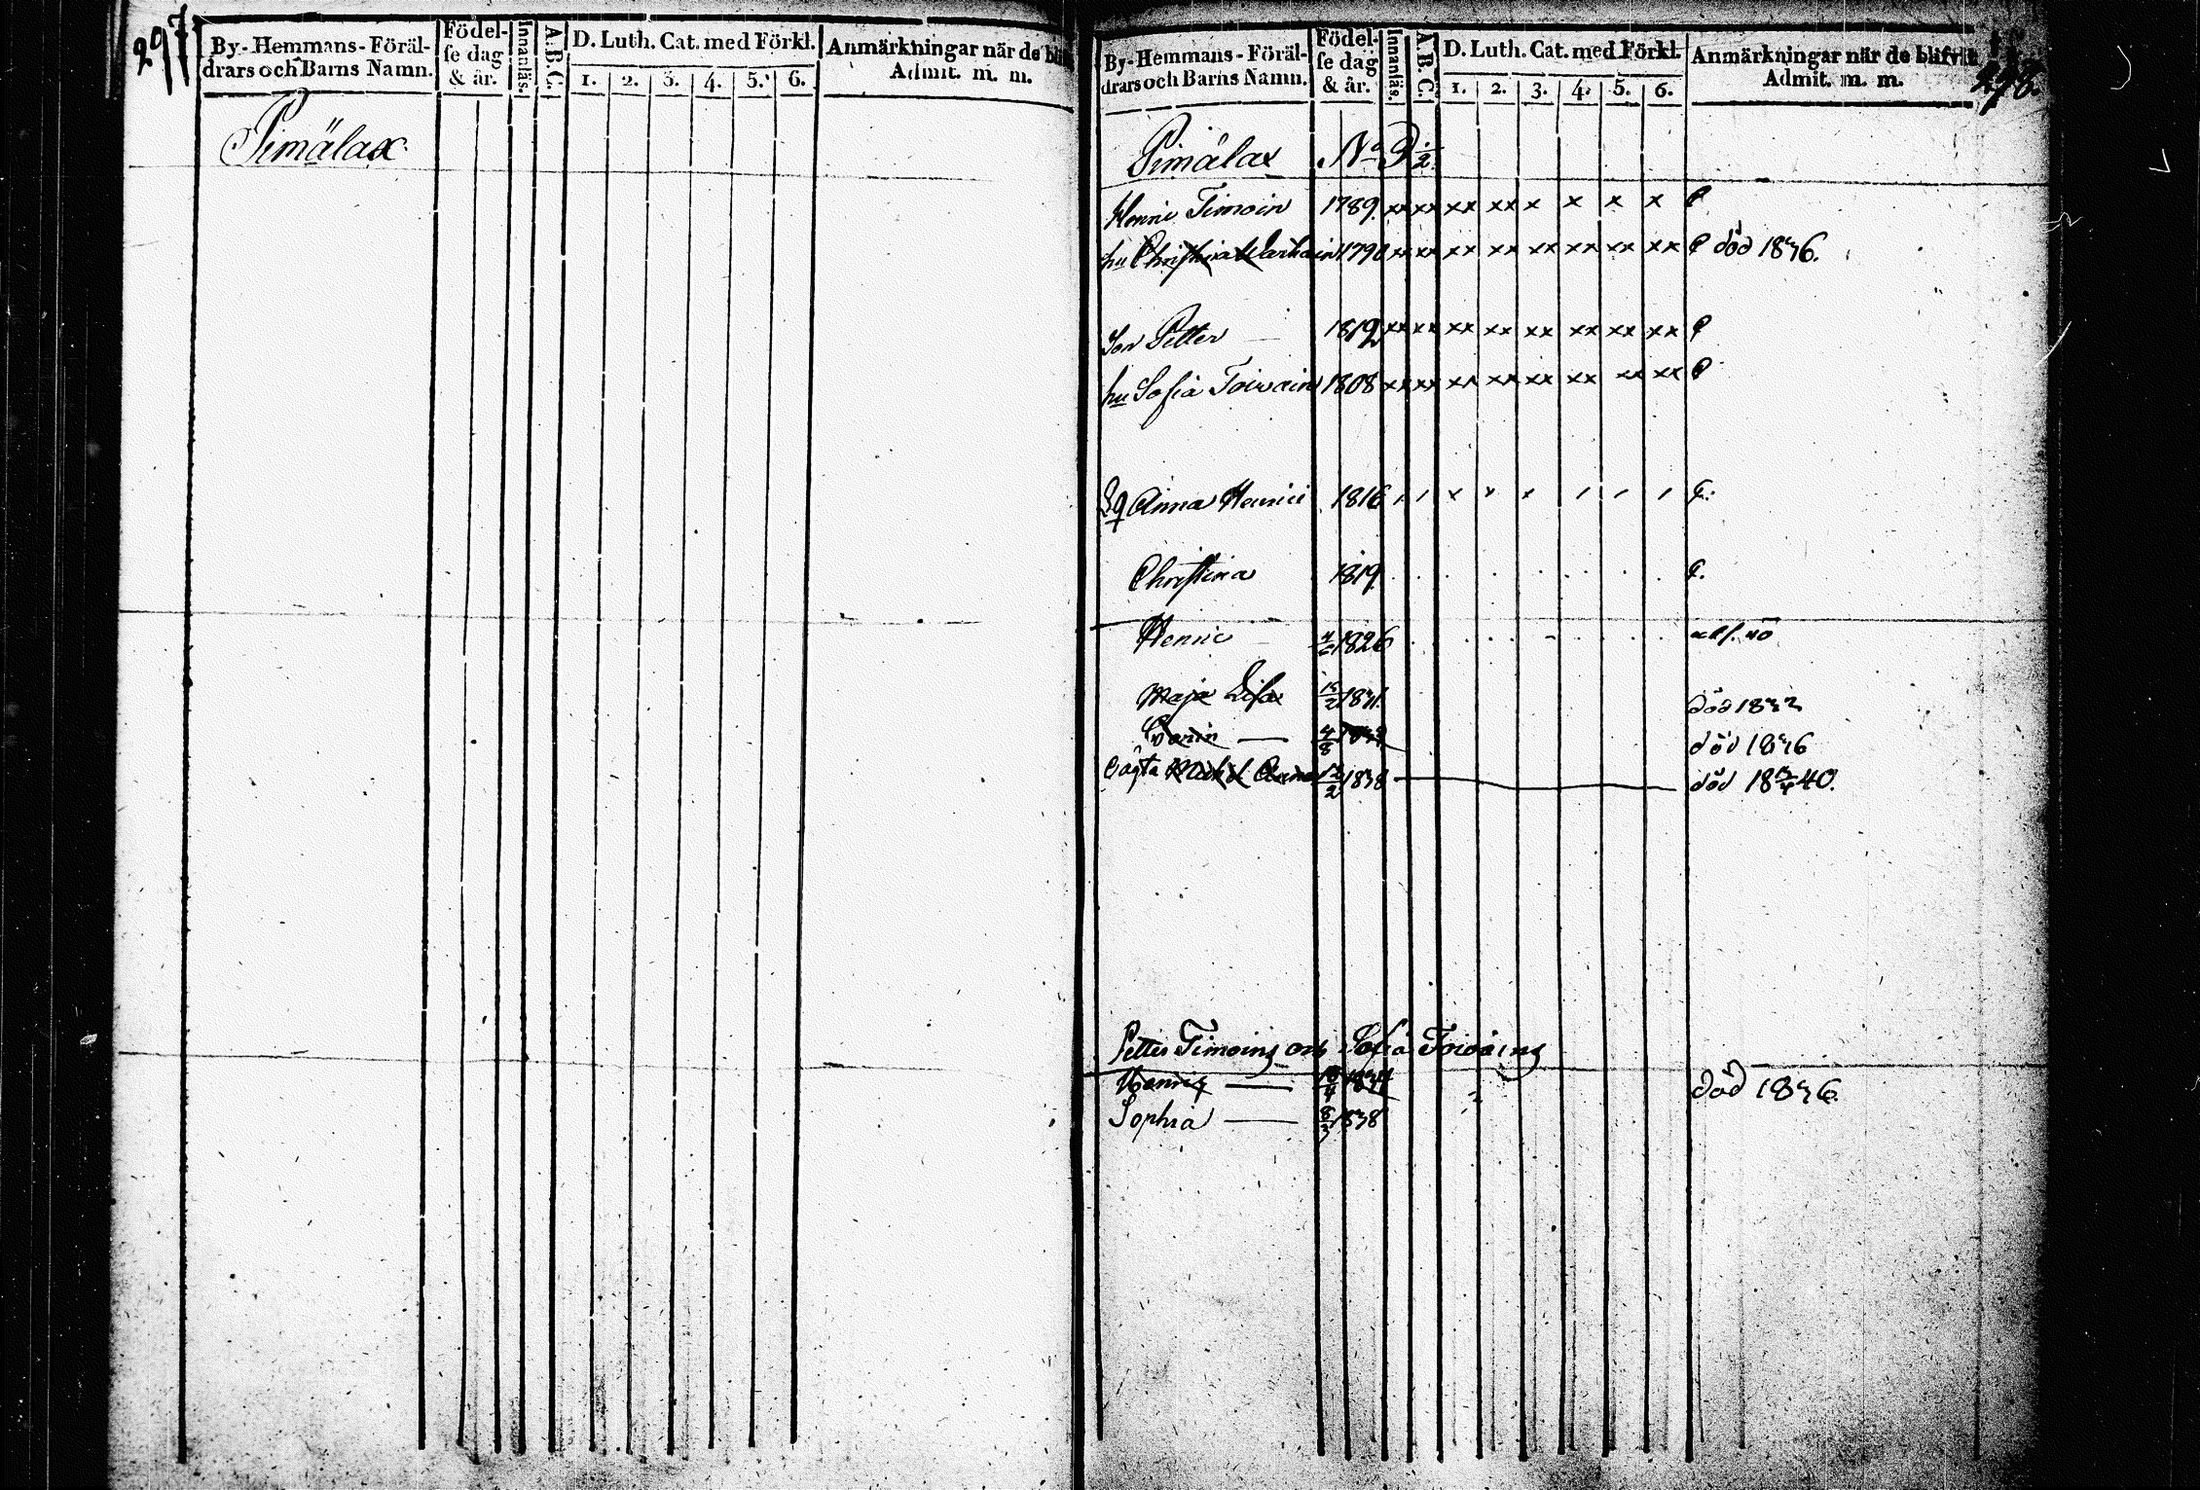 297
By-Hemmans-Föräl-
drars och Barns Namn.
Födel-
se dag
& år.
Innanläs.
A.B.C.
D. Luth. Cat. med Förkl.
1. 2. 3. 4. 5. 6.
Anmärkningar när de blif
Admit. m. m.
Pimälax
By-Hemmans-Föräl-
drars och Barns Namn.
Födel-
se dag
& år.
Innanläs.
A.B.C.
D. Luth. Cat. med Förkl.
1. 2. 3. 4. 5. 6.
Anmärkningar när de blifvit
Admit. m. m.
298.
Pimälax No 9 1/2
Henric Timoin 1789 xx xx xx xx x x x x
hu Christina 1790 xx xx xx xx xx xx xx xx död 1836.
Son Petter 1812 xx xx xx xx xx xx xx xx
hu Sofia Toivain 1808 xx xx xx xx xx xx xx xx
Anna Henric 1816
Christina 1819
Henric 1826
Maja Lisa 1831. död 1832
4/8 död 1836
Oägta Anna 12/2 1838 död 40.
Petter Timoins och Sofia Toivains
Henric 1834 död 1836.
Sophia 8/3 1838